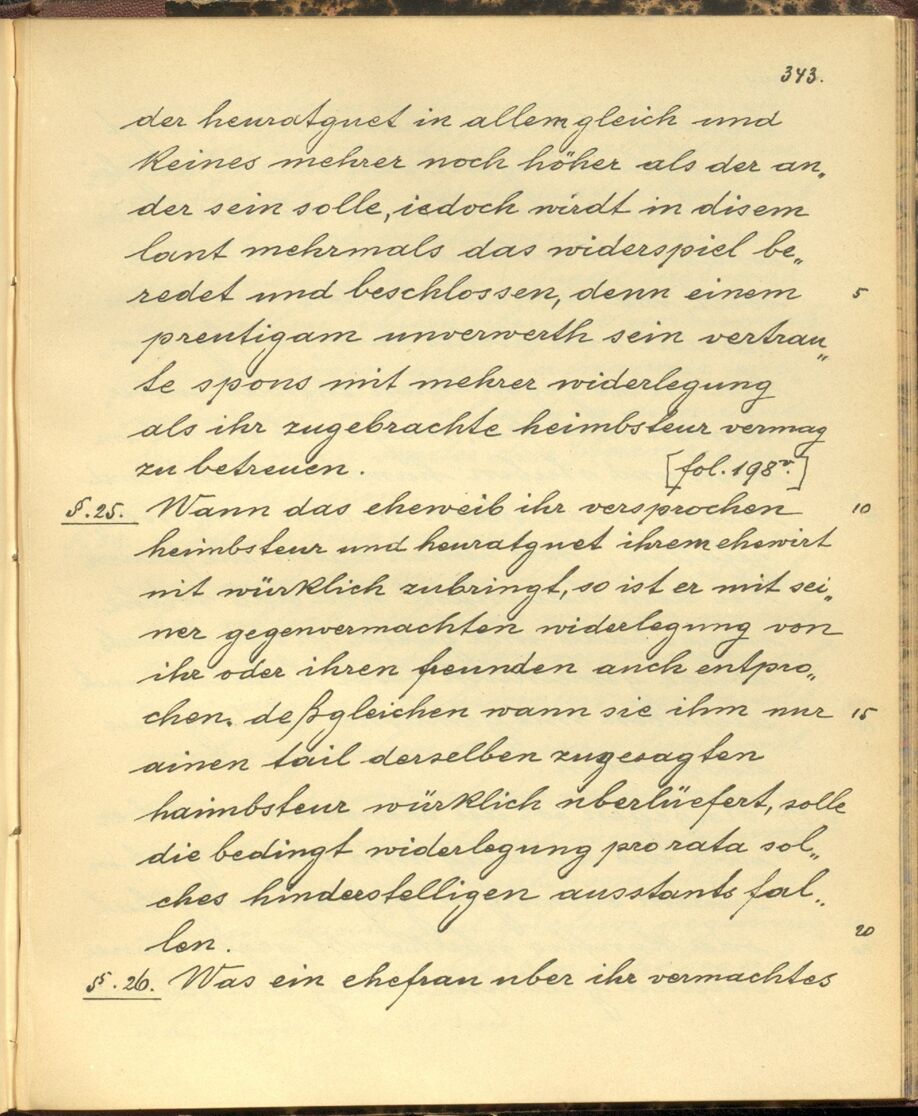 343.
der heuratguet in allem gleich und
keines mehrer noch höher als der an„
der sein solle, iedoch wirdt in disem
lant mehrmals das widerspiel be„
redet und beschlossen, denn einem 5
preutigam unverwerth sein vertrau„
te spons mit mehrer widerlegung
als ihr zugebrachte heimbsteur vermag
zu betreuen. [fol. 198v.]
§. 25. Wann das eheweib ihr versprochen 10
heimbsteur und heuratguet ihrem ehewirt
nit würklich zubringt, so ist er mit sei„
ner gegenvermachten widerlegung von
ihr oder ihren freunden auch entpro„
chen. deßgleichen wann sie ihm nur 15
ainen tail derselben zugesagten
haimbsteur würklich uberlüefert, solle
die bedingt widerlegung pro rata sol„
ches hinderstelligen ausstants fal„
len. 20
§. 26. Was ein ehefrau uber ihr vermachtes